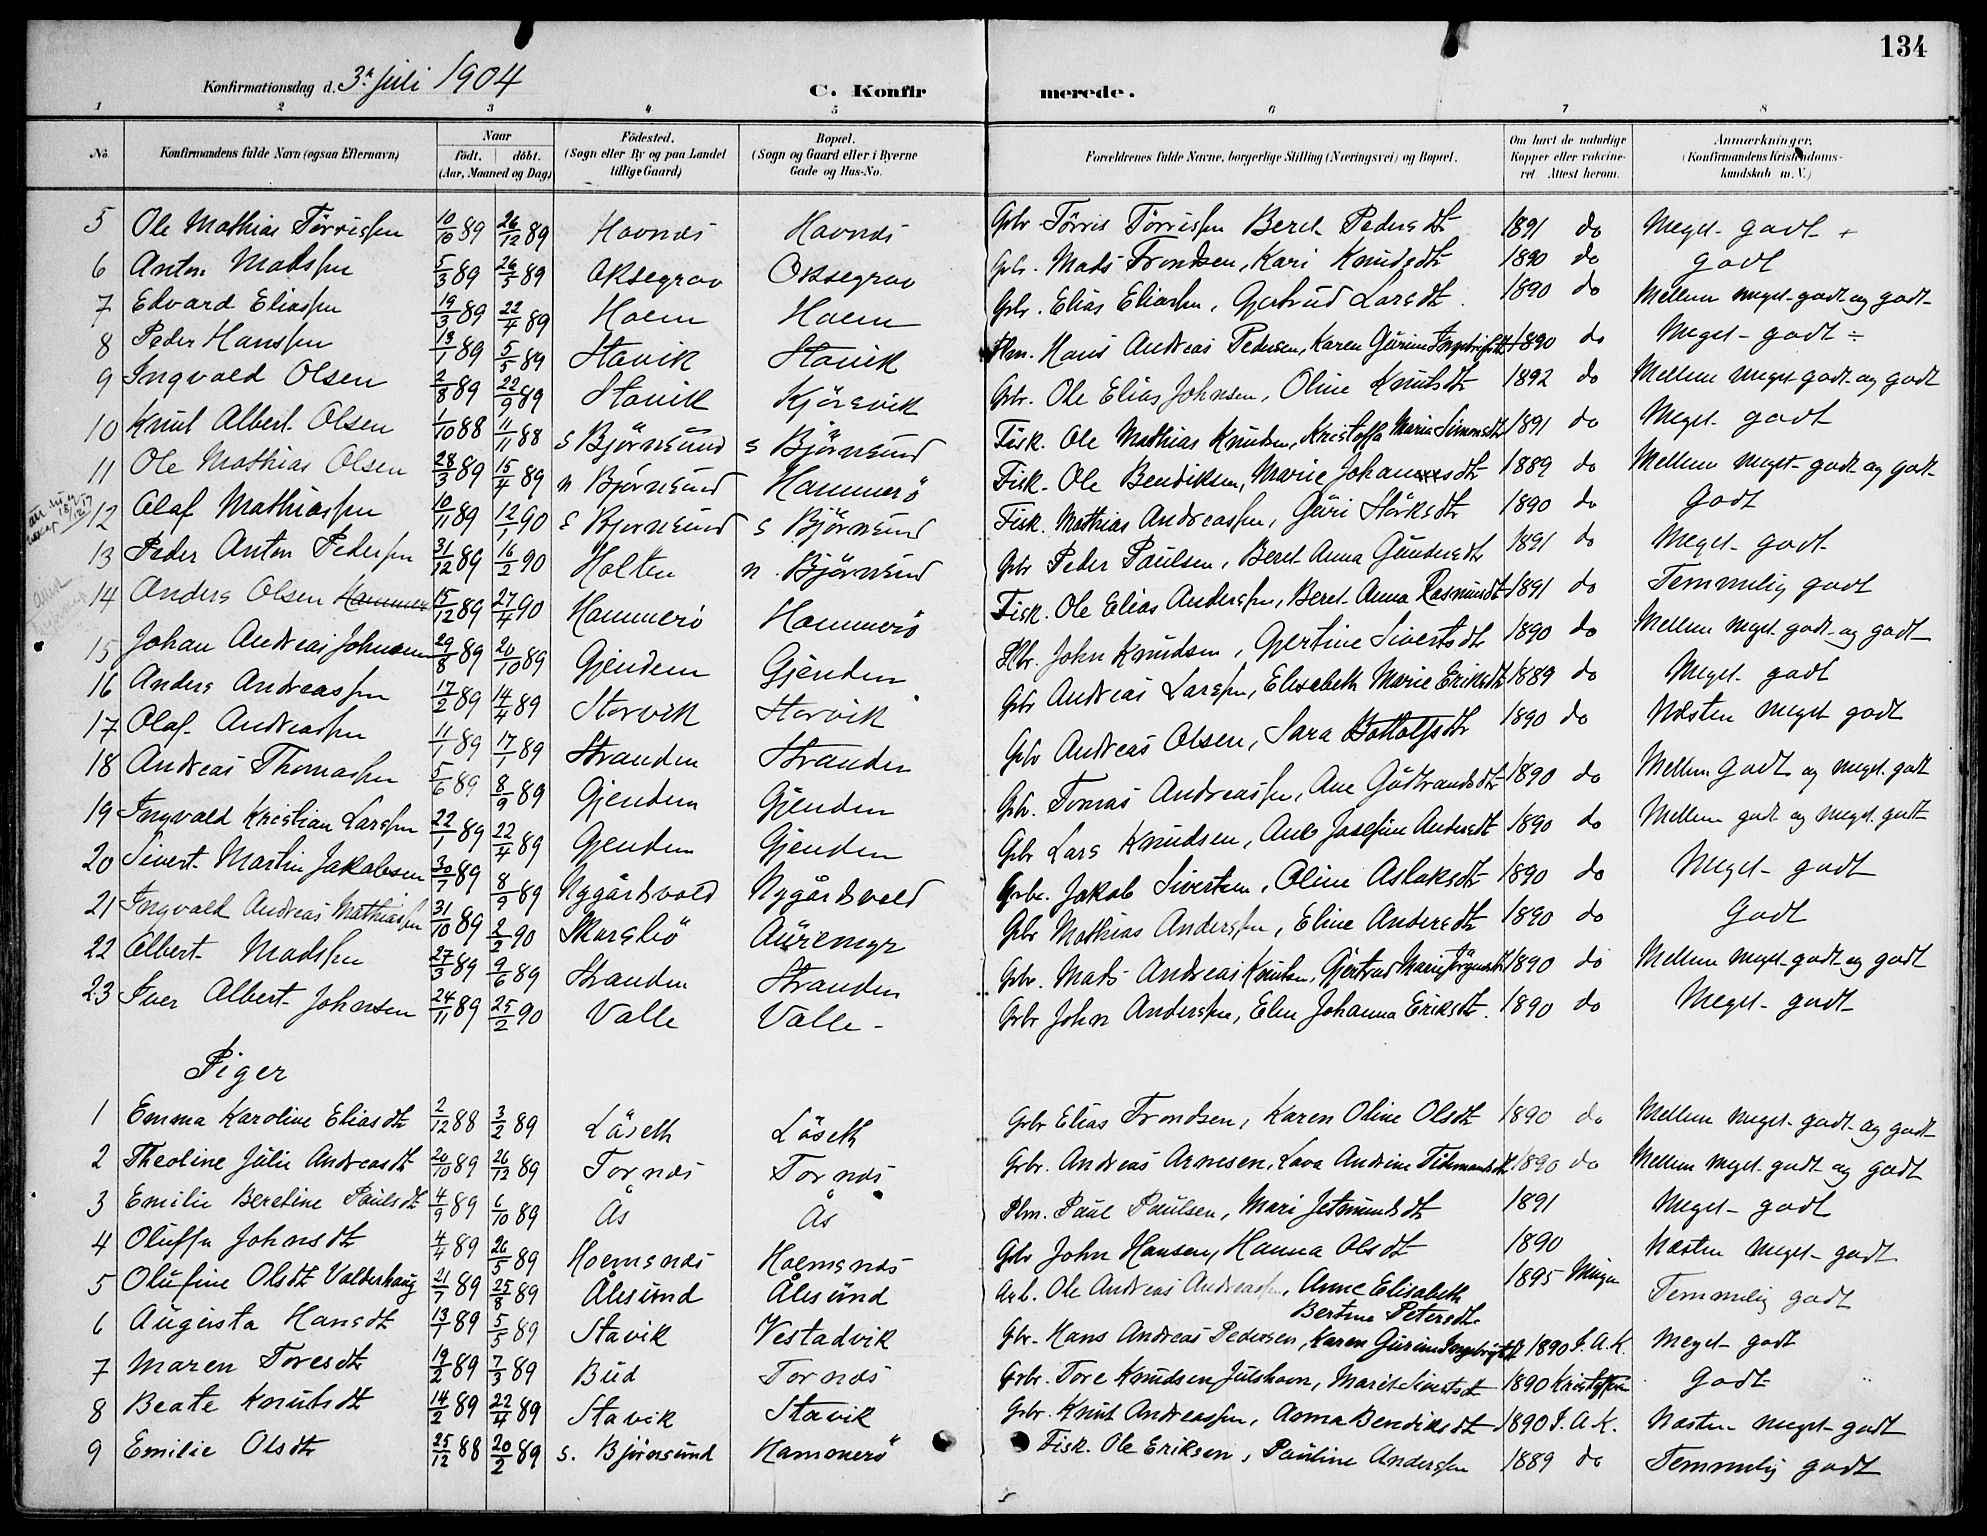 134
Konfirmationsdag d. 3' Juli 1904
C. Konfirmerede.
1 2 3 4 5 6 7 8
No. | Konfirmandens fulde Navn (ogsaa Efternavn) | Naar födt. döbt. (Aar, Maaned og Dag) | Födested. (Sogn eller By og paa Landet tillige Gaard) | Bopæl. (Sogn og Gaard eller i Byerne Gade og Hus-No. | Forældrenes fulde Navne, borgerlige Stilling (Næringsvei) og Bopæl. | Om havt de naturlige Kopper eller vakcineret Attest herom. | Anmærkninger. (Konfirmandens Kristendomskundskab m. V.)
5 Ole Mathias Törrissen 10/10 89 26/12 89 Havnæs Havnæs Gbr. Törris Törrissen Beret Pedersdtr 1891 do Meget godt +
6 Anton Madssen 5/3 89 26/5 89 Oksegrav Oksegrav Gbr. Mads Trondsen, Kari Knudsdtr 1890 do godt
7 Edvard Eliassen 19/3 89 22/4 89 Hoem Hoem Gbr. Elias Eliassen, Gjertrud Larsdtr 1890 do Mellem meget godt og godt
8 Peder Hanssen 13/1 89 5/5 89 Stavik Stavik Plm. Hans Andreas Pedersen, Karen Gurine Ingebrigtsdtr 1890 do Meget godt ÷
9 Ingvald Olsen 2/8 89 22/9 89 Stavik Kjörsvik Gbr. Ole Elias Johnsen, Oline Knutsdtr 1892 do Mellem meget godt og godt
10 Knut Albert Olsen 1/10 88 11/11 88 s Björnsund s Björnsund Fisk. Ole Mathias Knudsen, Kristoffa Marie Simonsdtr 1891 do Meget godt
11 Ole Mathias Olsen 28/3 89 15/4 89 n Björnsund Hammerö Fisk. Ole Bendiksen, Marie Johannesdtr 1889 do Mellem meget godt og godt
12 Olaf Mathiassen 10/11 89 12/1 90 s Bjornsund s Björnsund Fisk. Mathias Andreassen, Guri Störksdtr 1890 do Godt
13 Peder Anton Pedersen 31/12 89 16/2 90 Holten n. Björnsund Gbr Peder Paulsen, Beret Anna Gundersdtr 1891 do Meget godt
14 Anders Olsen Hammer 15/12 89 27/4 90 Hammerö Hammerö Fisk. Ole Elias Anderssen, Beret Anna Rasmusdtr 1891 do Temmelig godt
15 Johan Andreas Johnsen 29/8 89 20/10 89 Gjendem Gjendem Plbr. John Knudsen, Gjertine Sivertsdtr 1890 do Mellem meget godt og godt
16 Anders Andreassen 17/2 89 14/4 89 Storvik Storvik Gbr Andreas Larssen, Elisabeth Marie Eriksdtr 1889 do Meget godt
17 Olaf Andreassen 11/1 89 17/1 89 Stranden Stranden Gbr Andreas Olsen, Sara Bottolfsdtr 1890 do Næsten meget godt
18 Andreas Thomassen 5/6 89 8/9 89 Gjendem Gjenden Gbr. Tomas Andreassen, Ane Gudbrandsdtr 1890 do Mellem Godt og meget godt
19 Ingvald Kristian Larssen 22/1 89 22/4 89 Gjenden Gjenden Gbr Lars Knudsen, Ane Josefine Andersdt 1890 do Mellem godt og meget godt
20 Sivert Martin Jakobsen 30/7 89 8/9 89 Nygårdsvold Nygårdsvold Gbr. Jakob Sivertsen, Oline Aslaksdtr 1890 do Meget godt
21 Ingvald Andreas Mathiassen 31/10 89 2/2 90 Skarsbö Auremyr Gbr Mathias Anderssen, Eline Andersdtr 1890 do Godt
22 Albert Madssen 27/3 89 9/6 89 Stranden Stranden Gbr. Mads Andreas Knutsen, Gjertrud Marie Jörgensdtr 1890 do Mellem meget godt og godt
23 Iver Albert Johnsen 24/11 89 25/2 90 Valle Valle Gbr John Anderssen, Elen Johanna Eriksdtr. 1890 do Meget godt
Piger
1 Emma Karoline Eliasdtr 2/12 88 3/2 89 Löseth Löseth Gbr Elias Trondsen, Karen Oline Olsdtr 1890 do Mellem meget godt og godt
2 Theoline Julie Andreasdtr 20/10 89 26/12 89 Tornæs Tornæs Gbr. Andreas Arnesen, Lava Andrine Tidemandsdtr 1890 do Mellem meget godt og godt
3 Emilie Beretine Paulsdtr 4/9 89 6/10 89 Ås Ås Plm. Paul Paulsen, Mari Jetmundsdtr 1891 Meget godt
4 Oluffa Johnsdtr 4/4 89 26/5 89 Hoemsnæs Hoemsnæs Gbr John Hansen, Hanna Olsdtr 1890 Næsten meget godt
5 Olufine Olsdtr Valderhaug 21/7 89 25/8 89 Ålesund Ålesund Arb. Ole Andreas Andreassen, Anne Elisabeth Bertine Petersdtr 1895 Temmelig godt
6 Augusta Hansdtr 13/1 89 5/5 89 Stavik Vestadvik Gbr. Hans Andreas Pedersen, Karen Gurine Ingebrigtsdtr 1890 I. A. K. Meget godt
7 Maren Toresdtr 19/2 89 7/3 89 Bud Tornæs Gbr. Tore Knudsen Julshavn, Marit Sivertsdtr 1890 Kristoffersen Godt
8 Beate Knutsdtr 14/2 89 22/4 89 Stavik Stavik Gbr. Knut Andreassen, Anna Bendiksdtr 1890 I. A. K. Næsten meget godt
9 Emilie Olsdtr 25/12 88 20/2 89 s. Björnsund Hammerö Fisk. Ole Eriksen, Pauline Anderssen 1889 do Temmelig godt